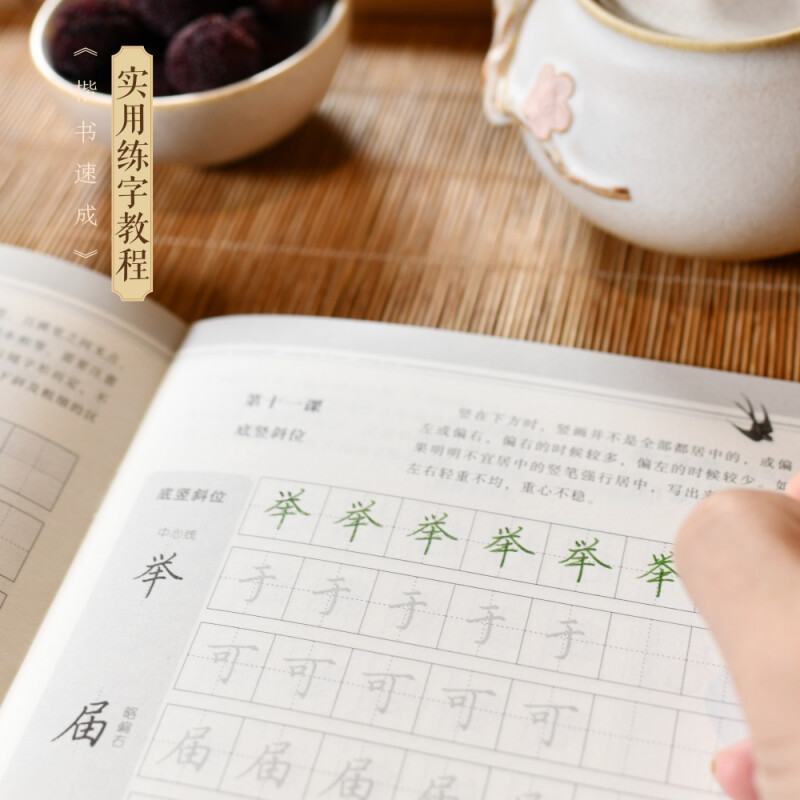 《楷书速成》
实用练字教程
第十一课
底竖斜位
竖在下方时，竖画并不是全部都居中的，或偏
左或偏右，偏右的时候较多，偏左的时候较少。如
果明明不宜居中的竖笔强行居中，写出来
左右轻重不均，重心不稳。
底竖斜位
中心线
举
举 举 举 举 举 举
于 于 于 于 于
可 可 可 可 可
略偏右
届
届 届 届 届